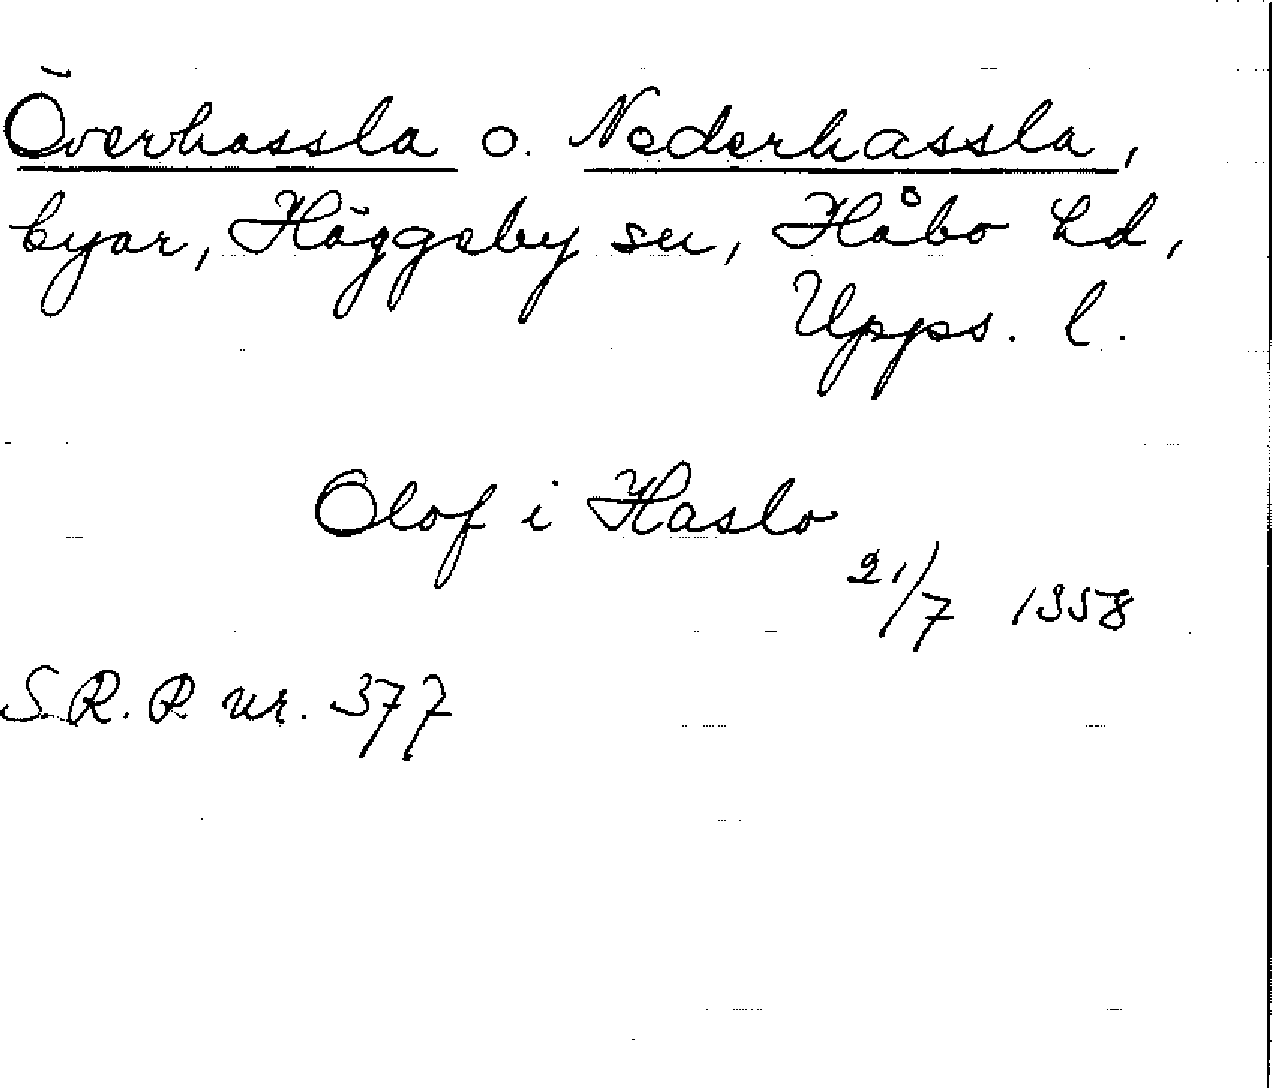 Överhassla o. Nederhassla,
byar, Häggeby sn, Håbo hd,
Upps. l.
Olof i Haslo
21/7 1358
S.R.P. nr. 377